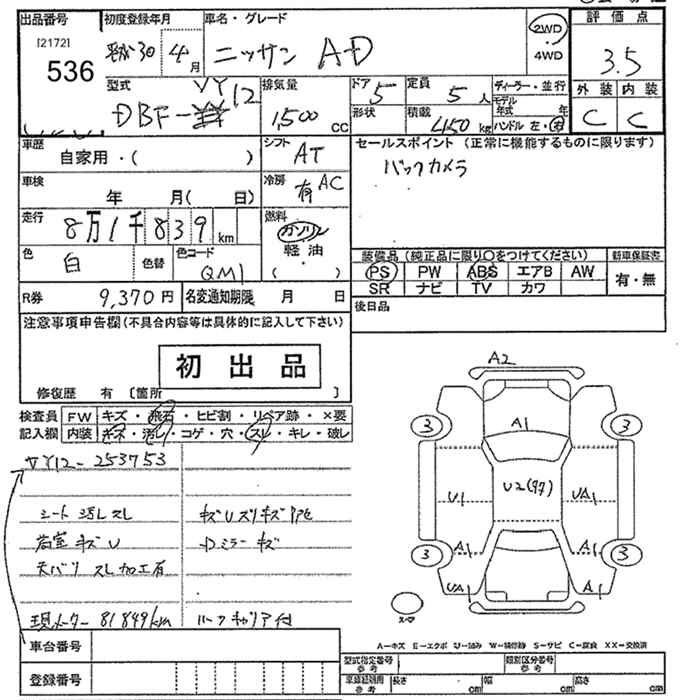 出品番号 初度登録年月 車名・グレード 2WD 評価点
[2172] 平成30 4月 ニッサン AD 4WD 3.5
536
型式 排気量 ドア 5 定員 5人 ディーラー・並行 外装 内装
DBF-VY12 1,500cc 形状 積載 450kg モデル年式 年 C C
ハンドル 左・右
車歴 シフト セールスポイント (正常に機能するものに限ります)
自家用・( ) AT バックカメラ
車検 年 月( 日) 冷房 有 AC
走行 8万1千839km 燃料 ガソリン
色 白 色替 色コード QM1 軽油 ( )
装備品 (純正品に限り○をつけてください) 新車保証書
PS PW ABS エアB AW 有・無
SR ナビ TV カワ
R券 9,370円 名変通知期限 月 日 後日品
注意事項申告欄(不具合内容等は具体的に記入して下さい)
初出品
修復歴 有 [箇所 ]
検査員 FW キズ・飛石・ヒビ割・リペア跡・×要
記入欄 内装 キズ・汚レ・コゲ・穴・スレ・キレ・破レ
VY12-253753
シート 汚レ スレ
荷室 キズU
天バリ スレ 加工有
Dミラーキズ
現メーター 81849km
車台番号
登録番号
A2
A1
3 3
U1 U2(97) UA1
3 A1 A1 3
UA1 A1
スペア
A=キズ E=エクボ U=凹み W=補修跡 S=サビ C=腐食 XX=交換済
型式指定番号 参考 類別区分番号 参考
車庫証明用 参考 長さ cm 幅 cm 高さ cm